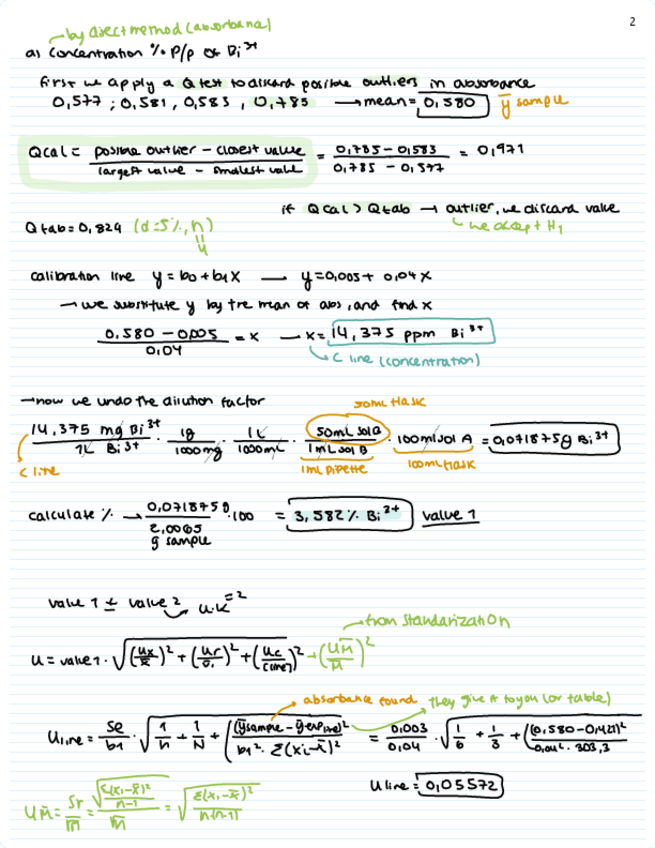 2
by direct method (absorbance)
a) concentration % p/p of Bi³⁺
first we apply a Q test to discard possible outliers in absorbance
0,577 ; 0,581 , 0,583 , 0,785 → mean = 0,580 ȳ sample
Qcal = (possible outlier − closest value) / (largest value − smallest value) = (0,785 − 0,583) / (0,785 − 0,577) = 0,971
if Qcal > Qtab → outlier, we discard value
Qtab = 0,829 (d=5%, n) we accept H₁
4
calibration line y = b₀ + b₁x — y = 0,005 + 0,04x
→ we substitute y by the mean of abs, and find x
(0,580 − 0,005) / 0,04 = x — x = 14,375 ppm Bi³⁺
C line (concentration)
→ now we undo the dilution factor
50mL flask
14,375 mg Bi³⁺ / 1L Bi³⁺ · 1g / 1000mg · 1L / 1000mL · 50mL sol B / 1mL sol B · 100ml sol A = 0,071875g Bi³⁺
C line 1mL pipette 100mL flask
calculate % → 0,071875g / 2,0065 · 100 = 3,582% Bi³⁺ value 1
g sample
value 1 ± value 2 u·k⁼²
from standarization
u = value 1 · √((ux/x̄)² + (ur/)² + (uc/C line)² + (uM̄/M̄)²
absorbance found they give it to you (or table)
u line = se/b₁ · √(1/n + 1/N + (ȳsample − ȳexp line)² / b₁² · Σ(xᵢ − x̄)²) = 0,003/0,04 · √(1/6 + 1/3 + (0,580 − 0,421)² / 0,04² · 303,3
u line = 0,05572
uM̄ = Sr/√n = √(Σ(xᵢ − x̄)² / n−1) / √n = √(Σ(xᵢ − x̄)² / n(n−1))